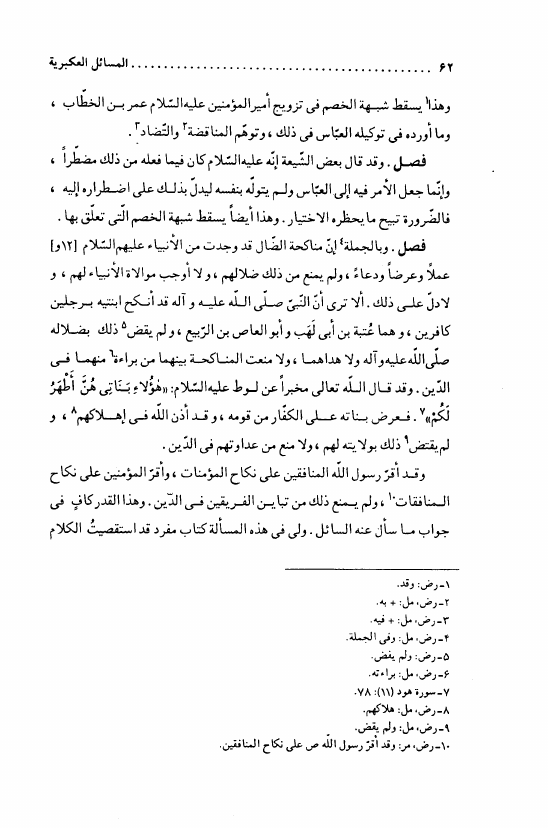 ٦٢ ............................................ المسائل العكبرية
وهذا١ يسقط شبهة الخصم فى تزويج أميرالمؤمنين عليه‌السّلام عمر بن الخطّاب ،
وما أورده فى توكيله العبّاس فى ذلك ، وتوهّم المناقضة٢ والتّضاد٣ .
فصل . وقد قال بعض الشّيعة إنّه عليه‌السّلام كان فيما فعله من ذلك مضطّراً ،
وإنّما جعل الأمر فيه إلى العبّاس ولم يتولّه بنفسه ليدلّ بذلك على اضطراره إليه ،
فالضّرورة تبيح ما يحظره الاختيار . وهذا أيضاً يسقط شبهة الخصم الّتى تعلّق بها .
فصل . وبالجملة٤ إنّ مناكحة الضّال قد وجدت من الأنبياء عليهم‌السّلام [١٢و]
عملاً وعرضاً ودعاءً ، ولم يمنع من ذلك ضلالهم ، و لا أوجب موالاة الأنبياء لهم ، و
لا دلّ على ذلك . ألا ترى أنّ النّبىّ صلّى اللّه عليه و آله قد أنكح ابنتيه برجلين
كافرين ، و هما عُتبة بن أبى لَهَب و أبو العاص بن الرّبيع ، و لم يقض٥ ذلك بضلاله
صلّى‌اللّه‌عليه‌وآله ولا هداهما ، ولا منعت المناكحة بينهما من براءة٦ منهما فى
الدّين . وقد قال اللّه تعالى مخبراً عن لوط عليه‌السّلام: «هٰؤُلاءِ بَنَاتِى هُنَّ أَطْهَرُ
لَكُمْ»٧ . فعرض بناته على الكفّار من قومه ، و قد أذن اللّه فى إهلاكهم٨ ، و
لم يقتض٩ ذلك بولايته لهم ، ولا منع من عداوتهم فى الدّين .
وقد أقرّ رسول اللّه المنافقين على نكاح المؤمنات ، وأقرّ المؤمنين على نكاح
المنافقات١٠ ، ولم يمنع ذلك من تباين الفريقين فى الدّين . وهذا القدر كافٍ فى
جواب ما سأل عنه السائل . ولى فى هذه المسألة كتاب مفرد قد استقصيتُ الكلام
١ـ رض: وقد.
٢ـ رض، مل: + به.
٣ـ رض، مل: + فيه.
٤ـ رض، مل: وفى الجملة.
٥ـ رض: ولم يفض.
٦ـ رض، مل: براءته.
٧ـ سورة هود (١١): ٧٨.
٨ـ رض، مل: هلاكهم.
٩ـ رض، مل: ولم يقض.
١٠ـ رض، مر: وقد أقرّ رسول اللّه ص على نكاح المنافقين.